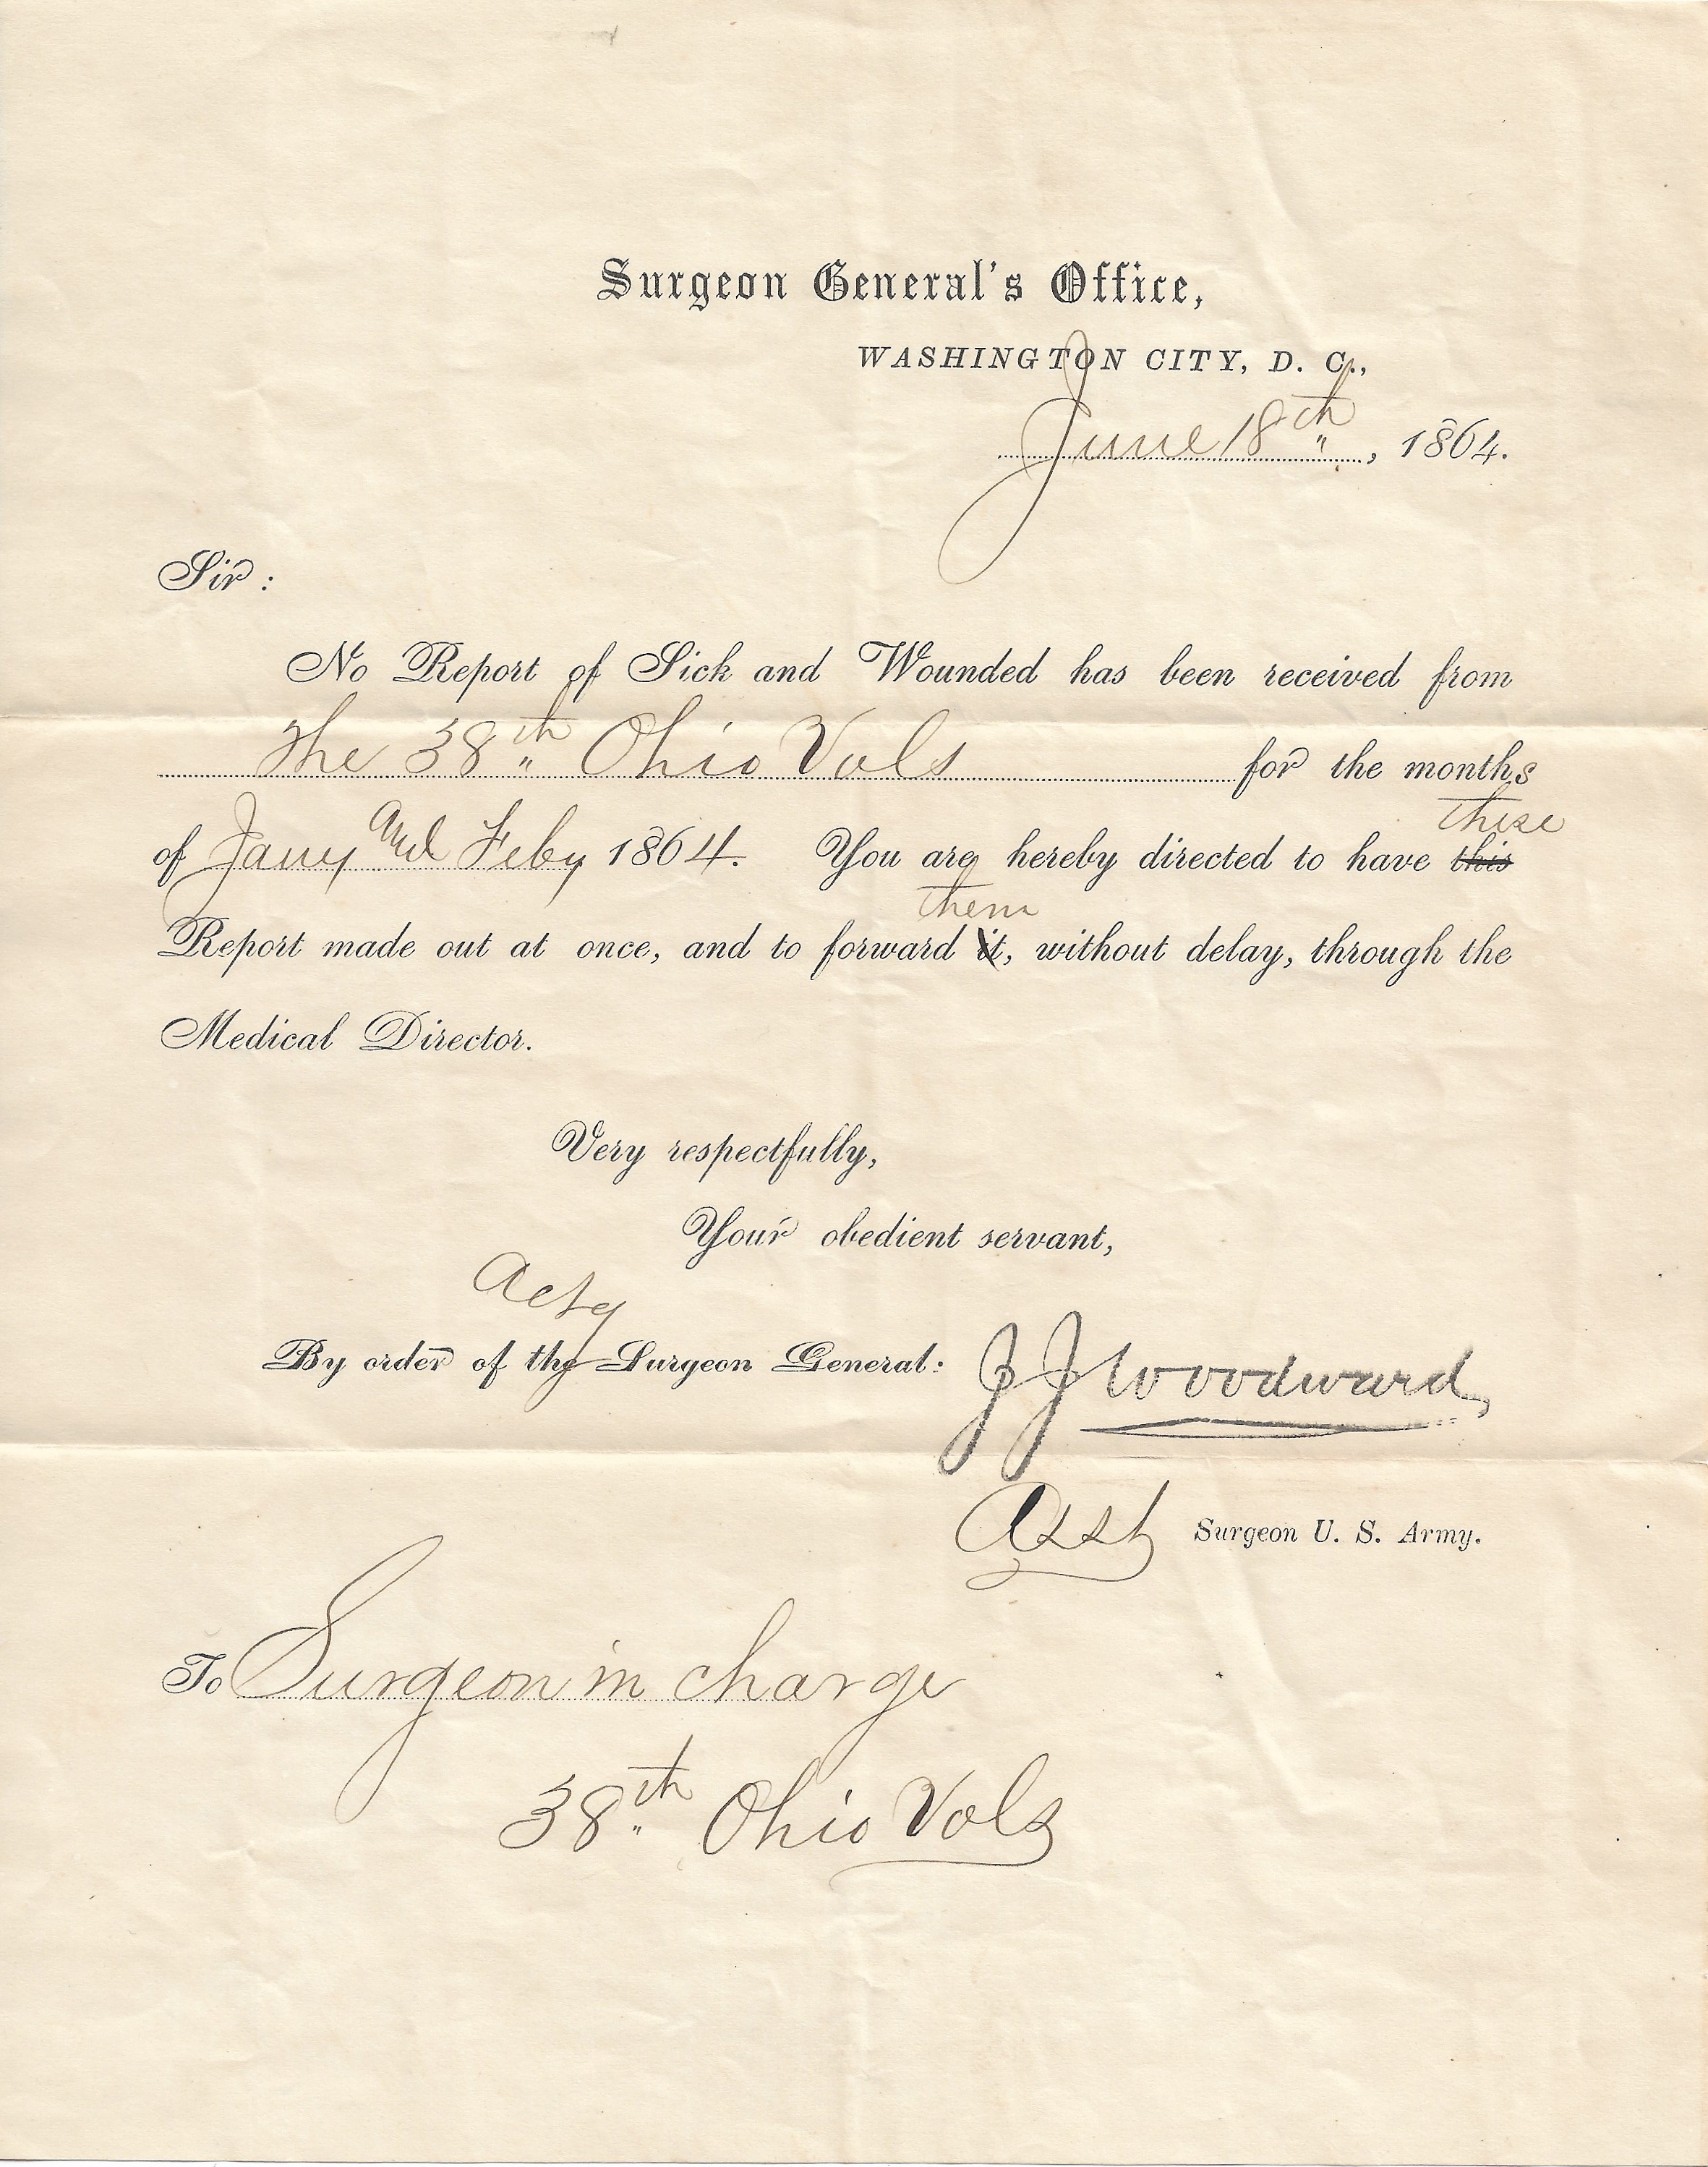 Surgeon General's Office,
WASHINGTON CITY, D. C.,
June 18th, 1864.
Sir:
No Report of Sick and Wounded has been received from
The 38th Ohio Vols for the months
of Jany and Feby 1864. You are hereby directed to have this these
Report made out at once, and to forward it them, without delay, through the
Medical Director.
Very respectfully,
Your obedient servant,
Actg
By order of the Surgeon General: J J Woodward,
Asst Surgeon U. S. Army.
To Surgeon in charge
38th Ohio Vols